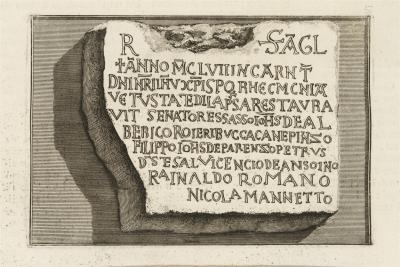 R SAGL
†ANNO MCLVII INCARNT
DNI NRI IHV XPI SPQR HEC MCNIA
VETVSTATE DILAPSA RESTAVRA
VIT SENATORES SASSO IOHS DE AL
BERICO ROIERI BVCCACANE PINZO
FILIPPO IOHS DE PARENZO PETRVS
D'S TE SALVI CENCIO DE ANSOINO
RAINALDO ROMANO
NICOLA MANNETTO